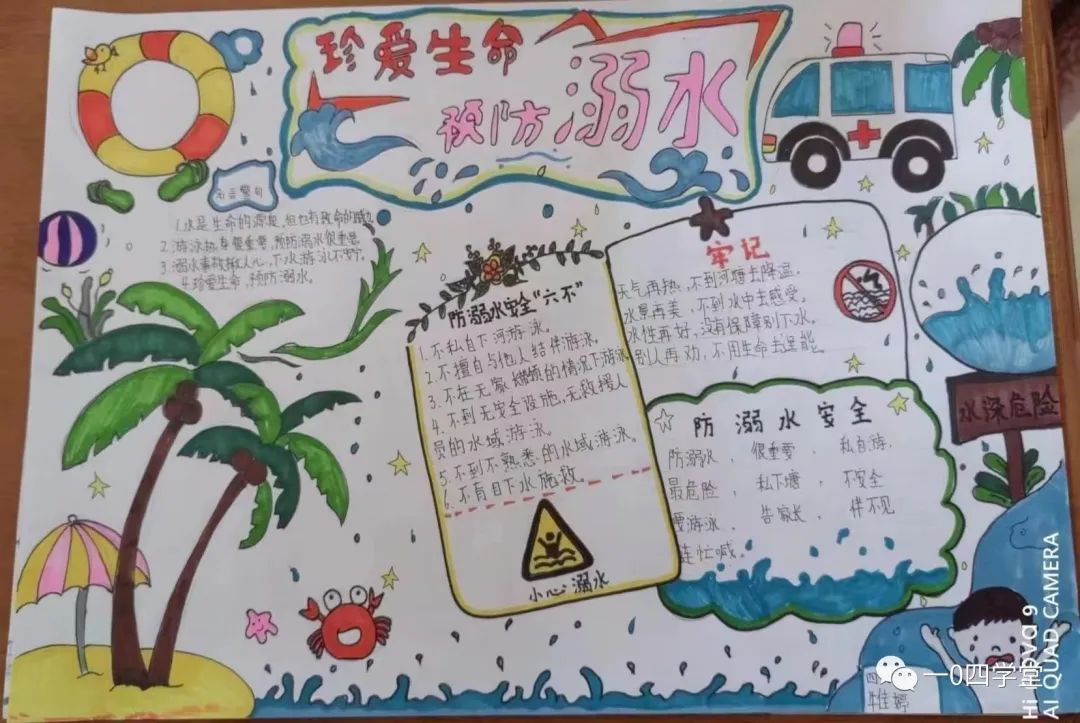 珍爱生命
预防溺水
名言警句
1.水是生命的源泉,但也有致命的威力
2.游泳热身要重要,预防溺水很重要
3.溺水事故揪人心,下水游泳不
4.珍爱生命,预防溺水。
防溺水安全"六不"
1.不私自下河游泳。
2.不擅自与他人结伴游泳。
3.不在无家 的情况下游泳
4.不到无安全设施,无救援人
员的水域游泳。
5.不到不熟悉的水域游泳。
6.不盲目下水施救。
小心溺水
牢记
天气再热,不到河塘去降温。
水景再美,不到水中去感受。
水性再好,没有保障别下水。
别人再劝,不用生命去逞能。
防溺水安全
防溺水,很重要,私自游,
最危险,私下塘,不安全
要游泳,告家长,伴不见
连忙喊。
水深危险
四
婷
一0四学堂
Hi nova 9
AI QUAD CAMERA